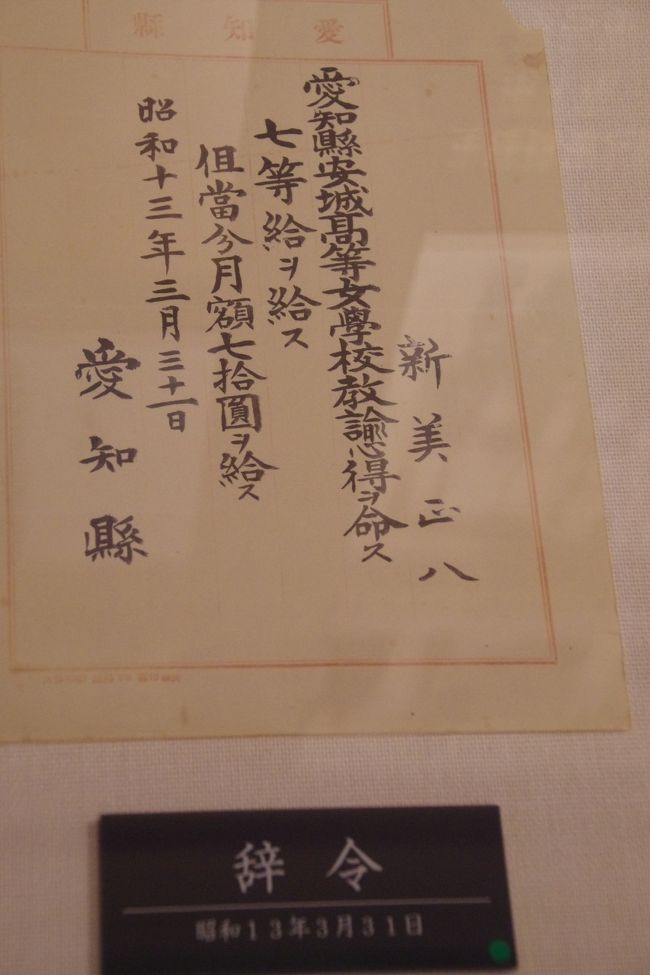 愛知縣
新美正八
愛知縣安城高等女學校教諭心得ヲ命ス
七等給ヲ給ス
但當分月額七拾圓ヲ給ス
昭和十三年三月三十一日
愛知縣
辞令
昭和13年3月31日